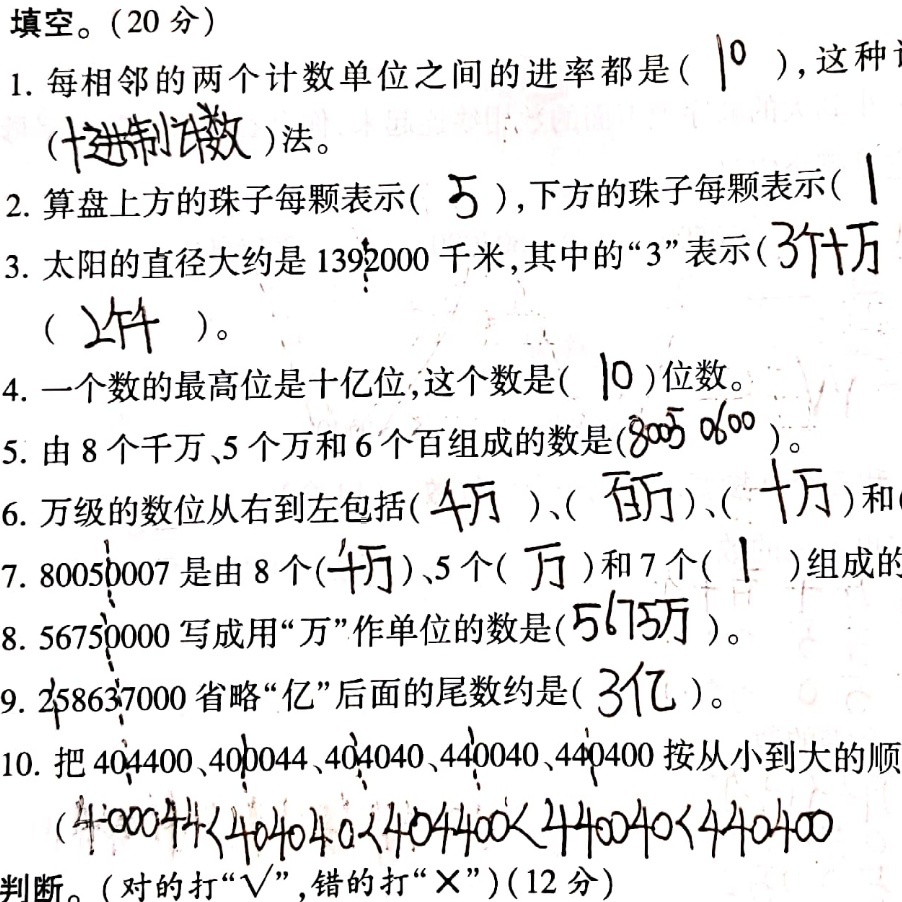 填空。(20 分)
1. 每相邻的两个计数单位之间的进率都是( 10 ),这种
(十进制计数)法。
2. 算盘上方的珠子每颗表示( 5 ),下方的珠子每颗表示( 1
3. 太阳的直径大约是 1392000 千米,其中的“3”表示(3个十万
( 2个千 )。
4. 一个数的最高位是十亿位,这个数是( 10 )位数。
5. 由 8 个千万、5 个万和 6 个百组成的数是(80050600 )。
6. 万级的数位从右到左包括( 千万 )、( 百万 )、( 十万 )和(
7. 80050007 是由 8 个(千万)、5 个( 万 )和 7 个( 1 )组成的
8. 56750000 写成用“万”作单位的数是(5675万 )。
9. 258637000 省略“亿”后面的尾数约是( 3亿 )。
10. 把 404400、400044、404040、440040、440400 按从小到大的顺
(400044<404040<404400<440040<440400
判断。(对的打“√”,错的打“×”)(12 分)